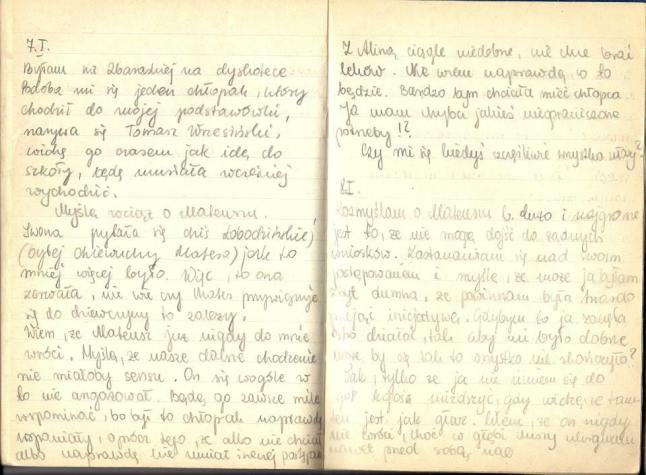 7.I.
Byłam na Zbaraskiej na dyskotece
Podoba mi się jeden chłopak, który
chodził do mojej podstawówki,
nazywa się Tomasz
widzę go czasem jak idę do
szkoły, będę musiała wcześniej
wychodzić.
Myślę wciąż o Mateuszu.
Iwona pytała się dziś
(byłej dziewczyny Matesa) jak to
mniej więcej było. Więc, to ona
zerwała, nie wie czy Mates przywiązuje
się do dziewczyny to zależy.
Wiem, że Mateusz już nigdy do mnie
wróci. Myślę, że nasze dalsze chodzenie
nie miałoby sensu. On się wogóle w
to nie angażował. Będę go zawsze mile
wspominać, bo był to chłopak naprawdę
wspaniały, oprócz tego, że albo nie chciał
albo naprawdę nie umiał inaczej
Z Aliną ciągle niedobrze, nie chce brać
leków. Nie wiem naprawdę co to
będzie. Bardzo bym chciała mieć chłopca
Ja mam chyba jakieś nieograniczone
potrzeby!?
Czy mi się kiedyś szczęśliwie wszystko ułoży?
8.I
Rozmyślam o Mateuszu b. dużo i najgorsze
jest to, że nie mogę dojść do żadnych
wniosków. Zastanawiam się nad swoim
postępowaniem i myślę, że może ja byłam
zbyt dumna, że powinnam była
przejąć inicjatywę. Gdybym to ja zaczęła
działać, tak aby mi było dobrze
może by się tak to wszystko nie skończyło?
Tak, tylko że ja nie umiem się do
kogoś gdy widzę, że tam
ten jest jak głaz. Wiem, że on nigdy
nie wróci, choć w głębi duszy
nawet przed sobą,